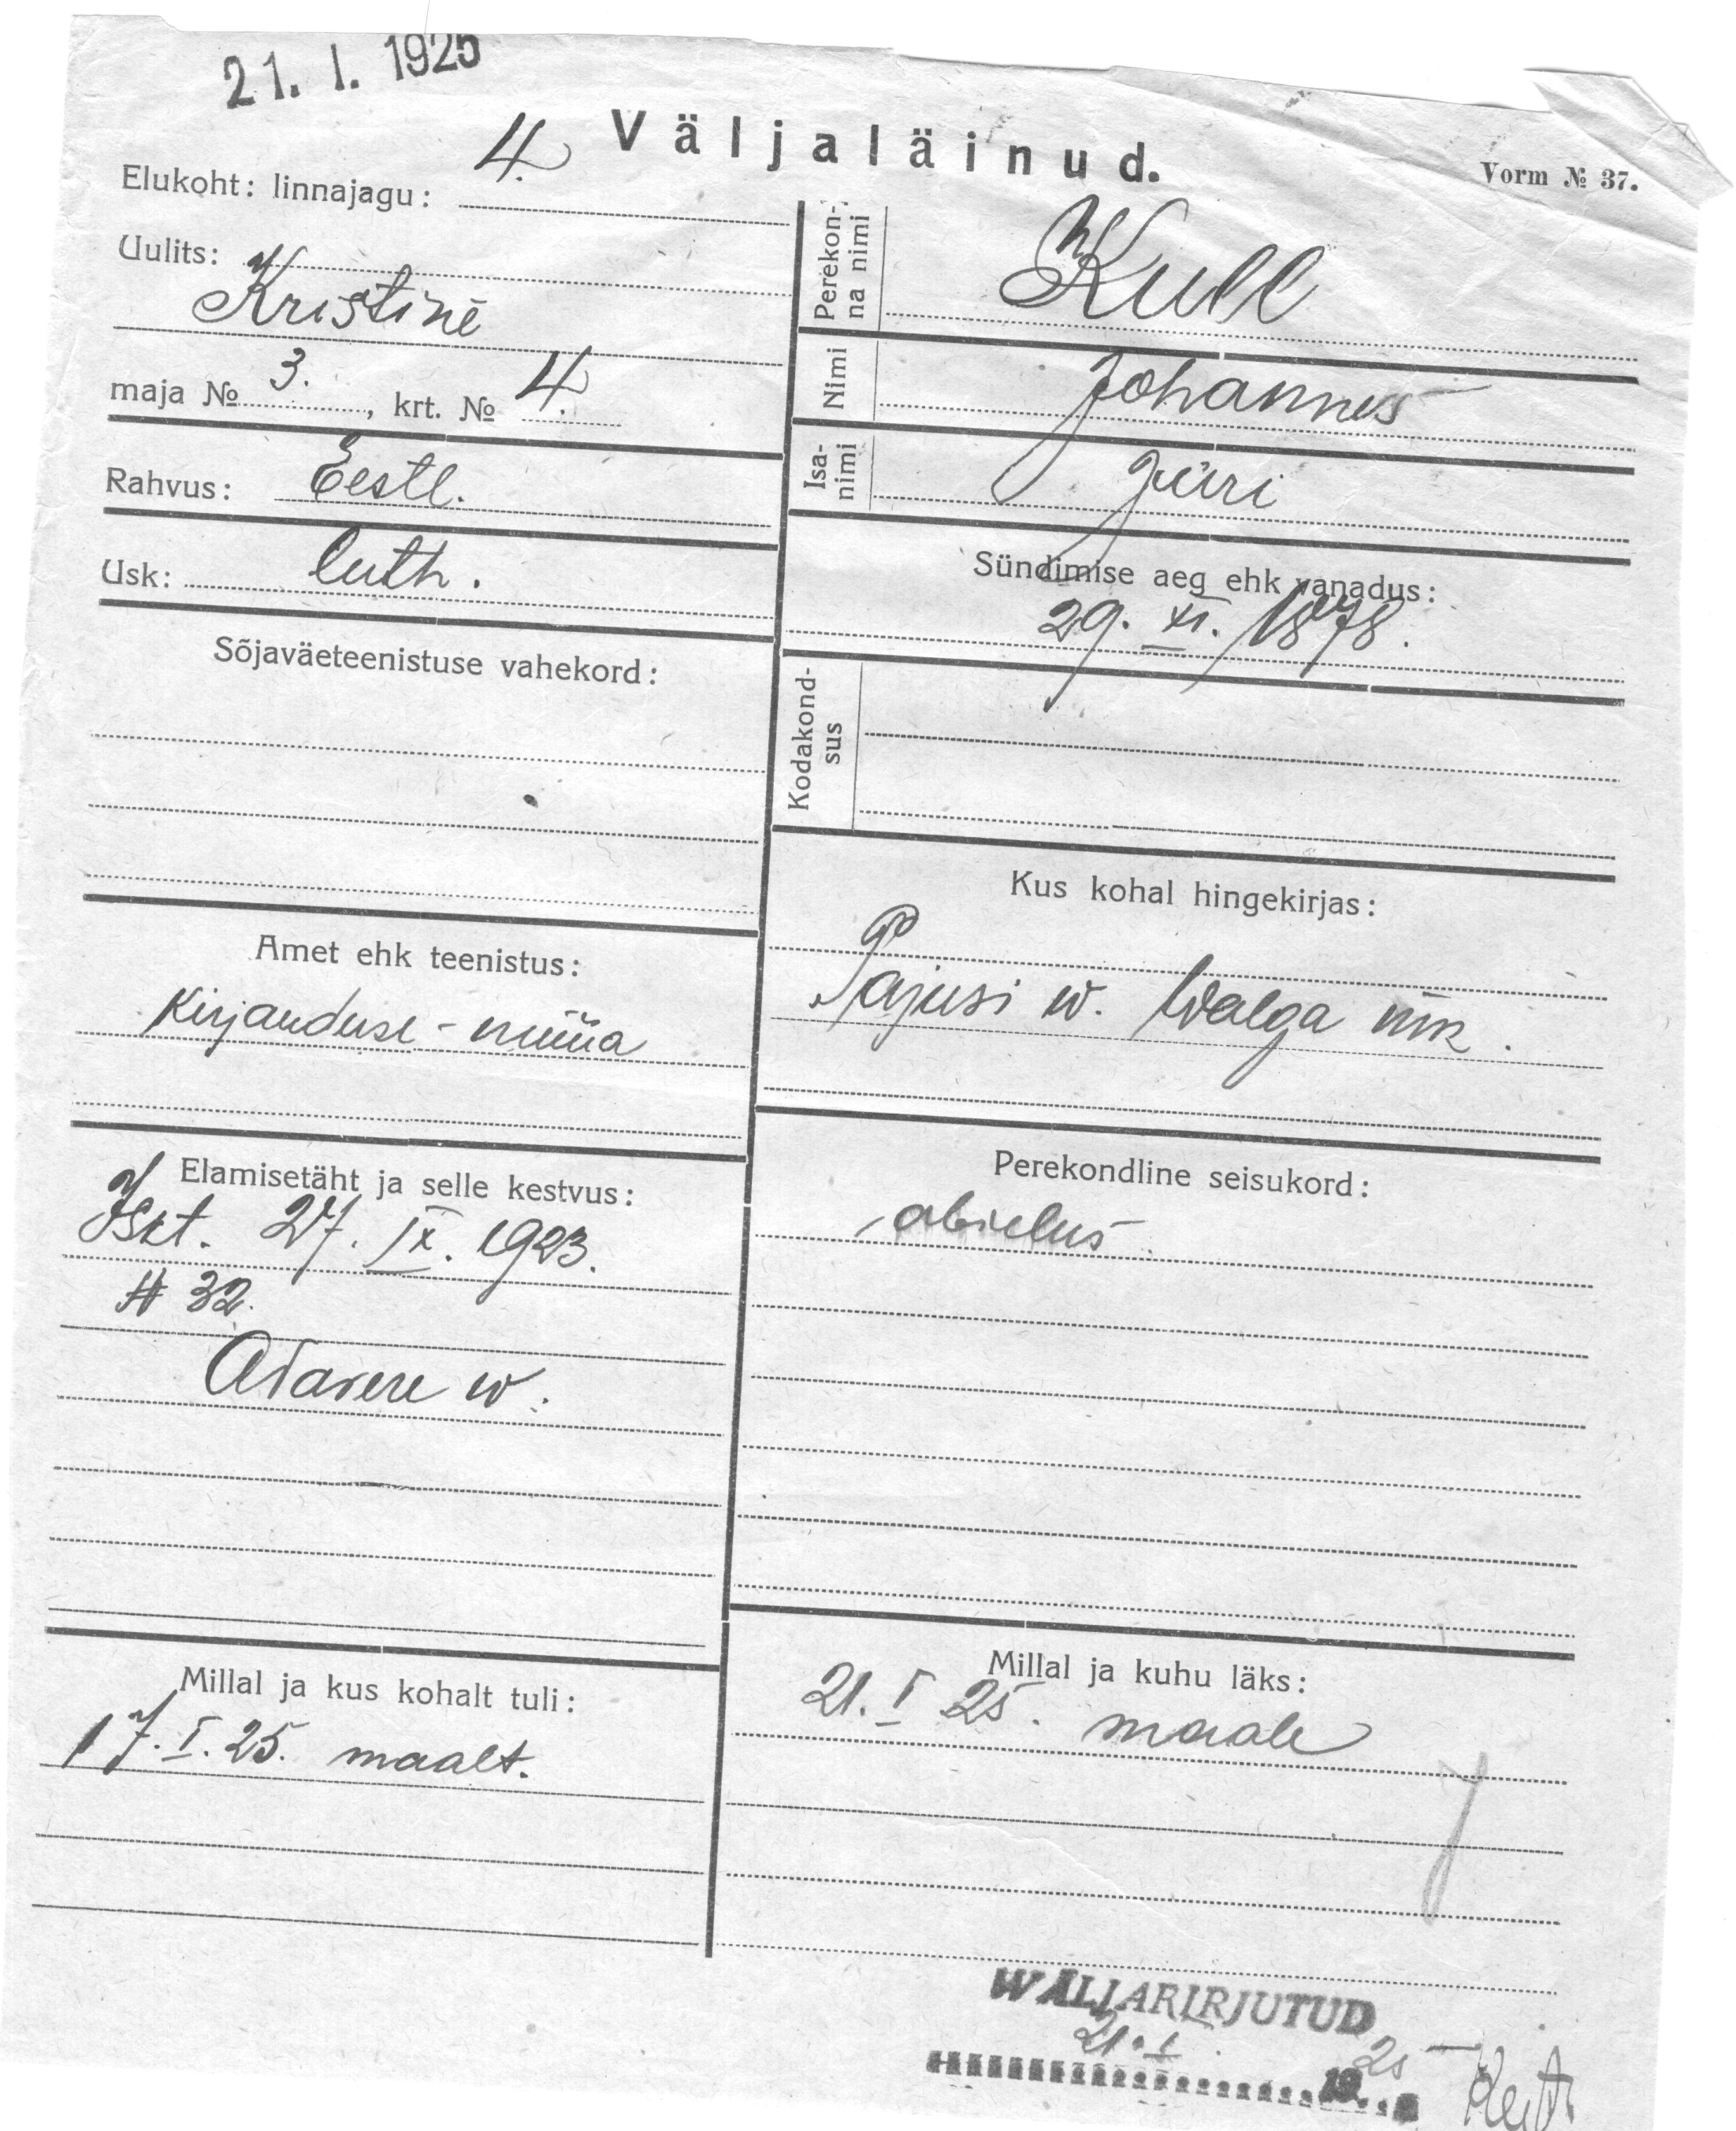 21. I. 1925
Väljaläinud.
Vorm № 37.
Elukoht: linnajagu: 4.
Uulits:
Kristine
maja № 3. , krt. № 4.
Rahvus: Eestl.
Usk: luth.
Sõjaväeteenistuse vahekord:
Amet ehk teenistus:
Kirjanduse-müüa
Elamisetäht ja selle kestvus:
Iskt. 27. IX. 1923.
# 32.
Adavere w.
Millal ja kus kohalt tuli:
17. I. 25. maalt.
Perekon-
na nimi
Kull
Nimi
Johannes
Isa-
nimi
Jüri
Sündimise aeg ehk vanadus:
29. XI. 1878.
Kodakond-
sus
Kus kohal hingekirjas:
Pajusi w. Walga mk.
Perekondline seisukord:
abielus
Millal ja kuhu läks:
21. I 25. maale
WÄLJAKIRJUTUD
21. I. 1925